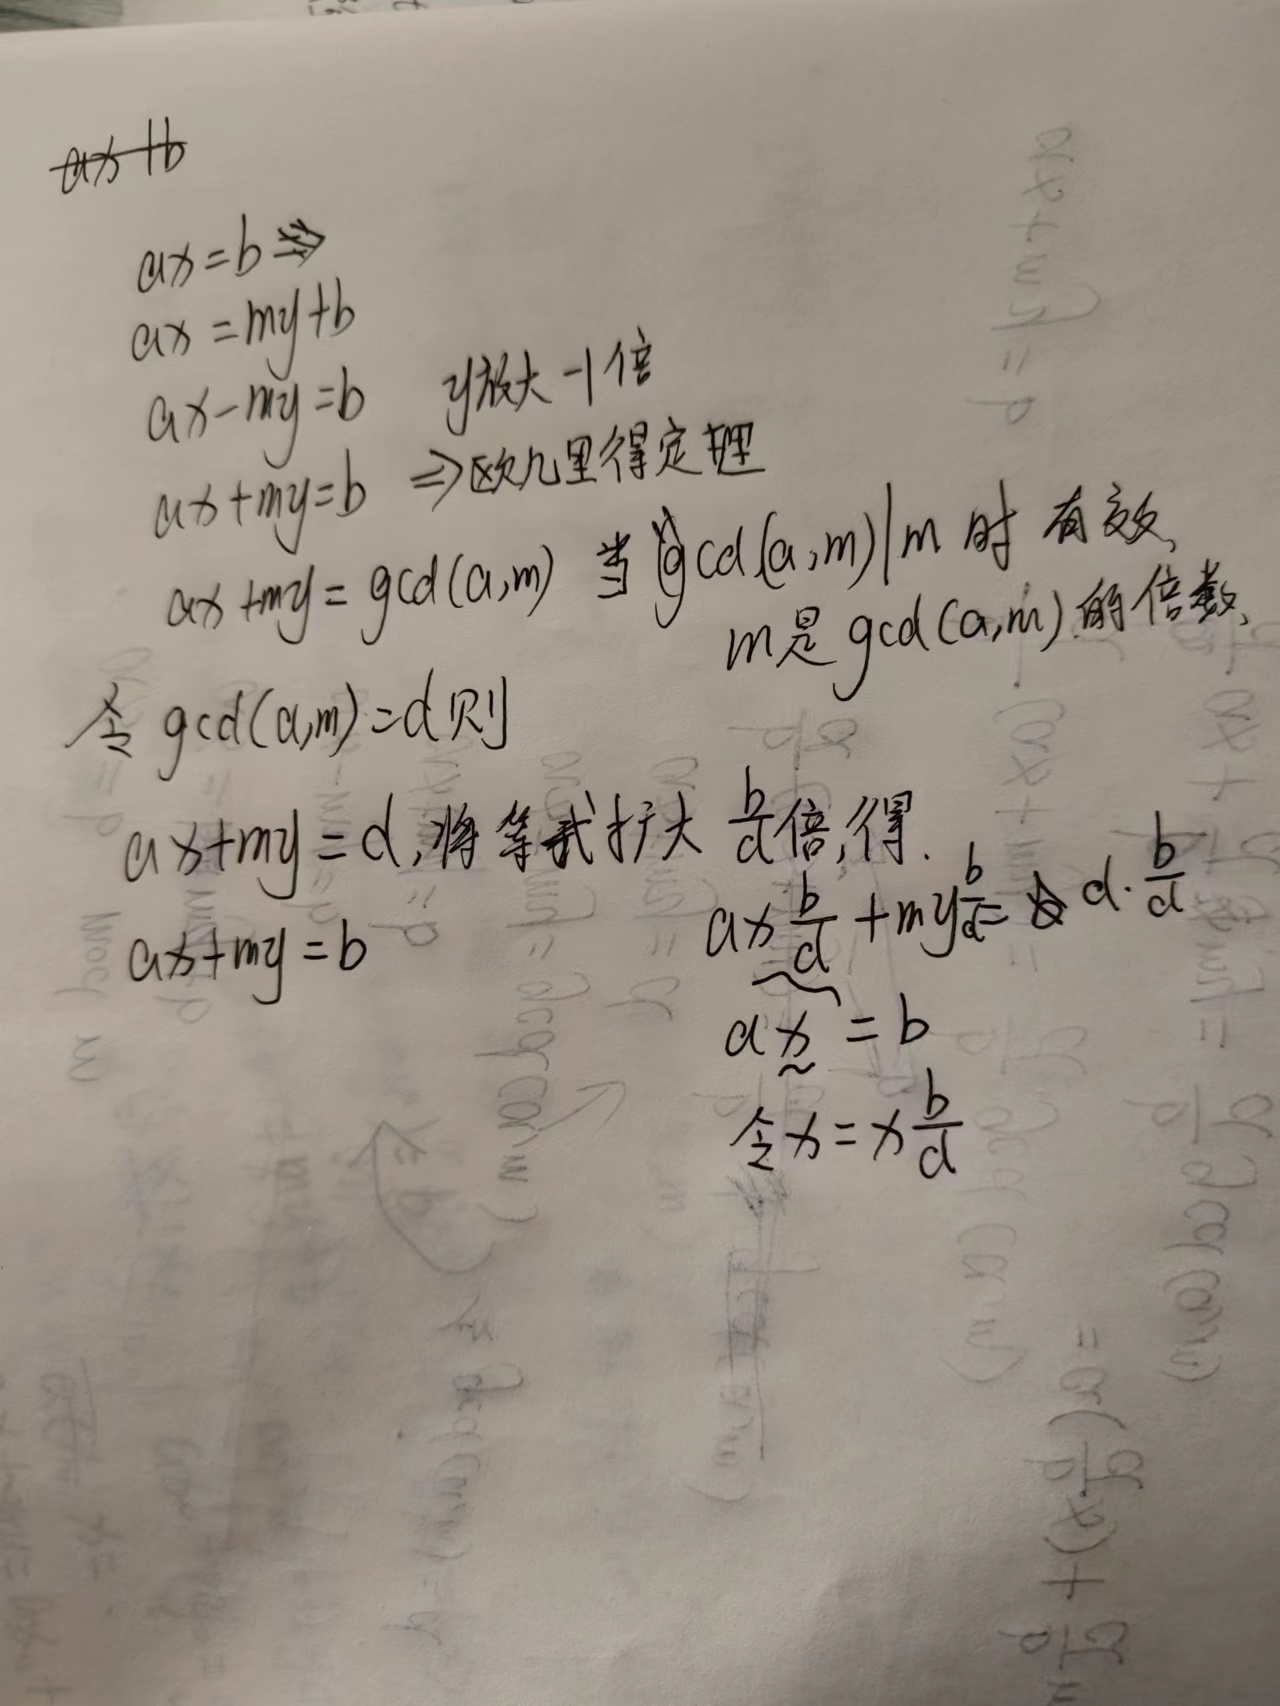 ax+b
ax=b⇒
ax=my+b
ax-my=b y放大-1倍
ax+my=b ⇒欧几里得定理
ax+my=gcd(a,m) 当gcd(a,m)|m时有效,
m是gcd(a,m)的倍数,
令gcd(a,m)=d则
ax+my=d,将等式扩大b/d倍,得.
ax b/d + my b/d = d·b/d
ax+my=b
ax=b
令x=x b/d